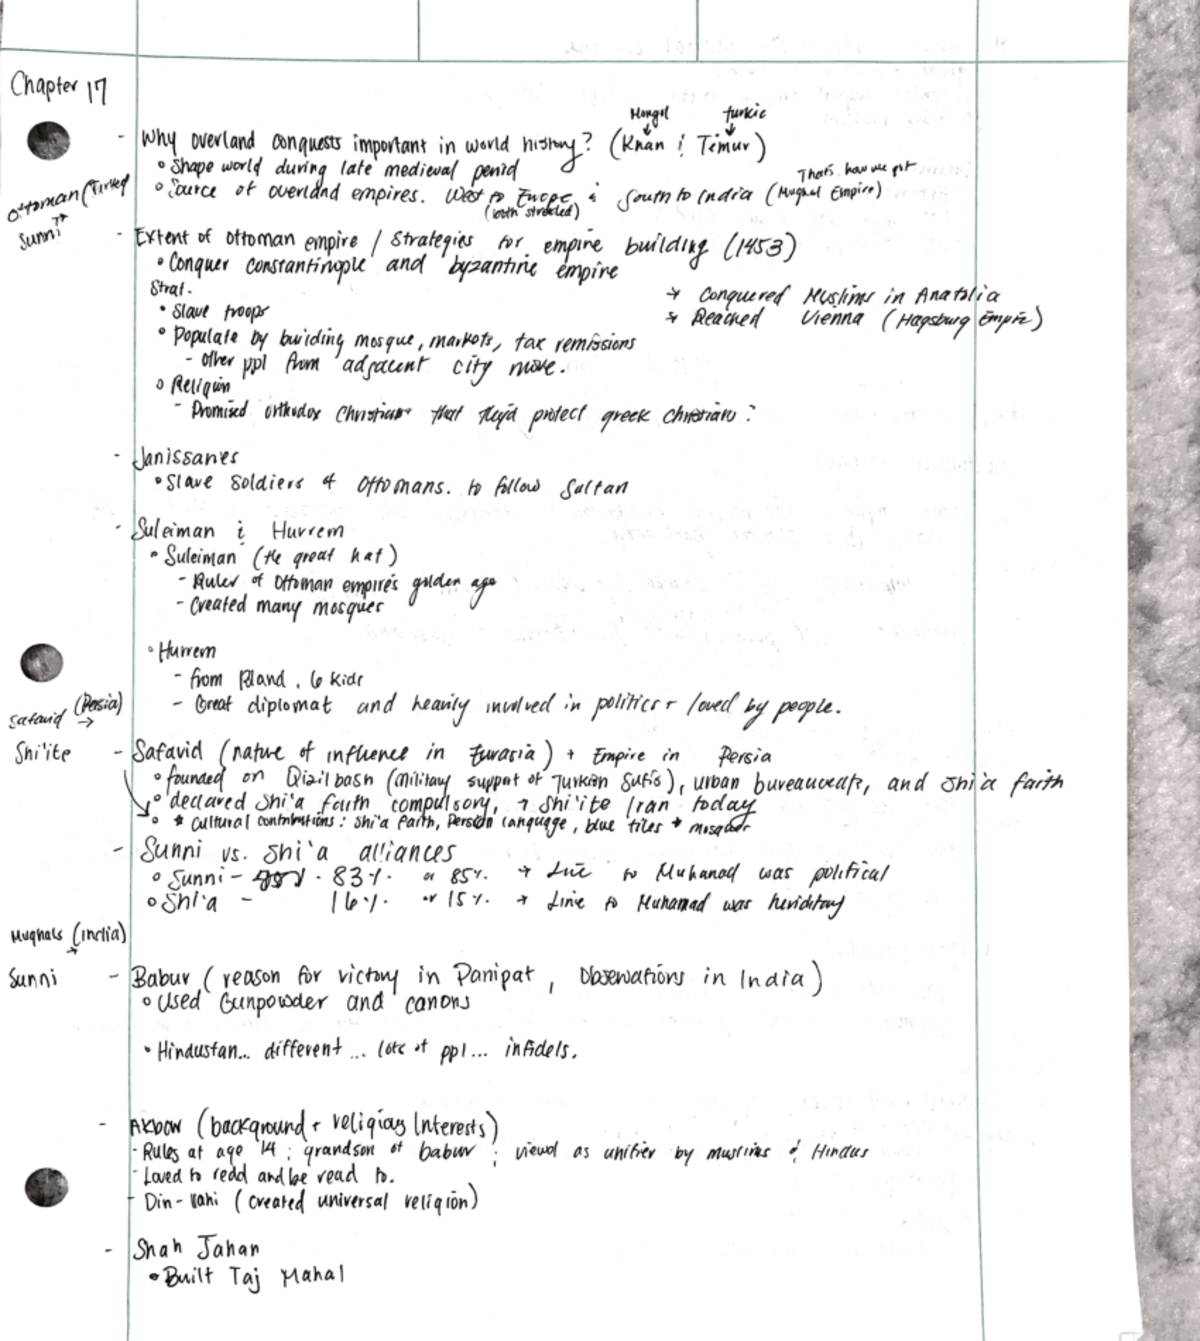 Chapter 17
Mongol Turkic
- Why overland conquests important in world history? (Khan & Timur)
◦ Shape world during late medieval period
That's how we got
◦ Source of overland empires. West to Europe & South to India (Mughal Empire)
(both streched)
Ottoman (Turkey)
Sunni
- Extent of Ottoman empire / Strategies for empire building (1453)
• Conquer constantinople and byzantine empire
Strat.
→ Conquered Muslims in Anatolia
• Slave troops
→ Reached Vienna (Hapsburg Empire)
◦ Populate by building mosque, markets, tax remissions
- other ppl from adjacent city move.
◦ Religion
- Promised orthodox Christians that they'd protect greek christians?
- Janissaries
• Slave Soldiers of Ottomans. to follow Sultan
- Suleiman & Hurrem
• Suleiman (the great hat)
- Ruler of Ottoman empire's golden age
- Created many mosques
• Hurrem
- from Poland, 6 kids
- Great diplomat and heavily involved in politics + loved by people.
Safavid (Persia) →
Shi'ite
- Safavid (nature of influence in Eurasia) → Empire in Persia
◦ founded on Qizilbash (Military support of Turkan Sufis), urban bureaucrats, and Shi'a faith
◦ declared Shi'a faith compulsory, → Shi'ite Iran today
◦ * Cultural contributions: Shi'a faith, Persian language, blue tiles * mosques
- Sunni vs. Shi'a alliances
◦ Sunni - 83% or 85% → Line to Muhamad was political
◦ Shi'a - 16% or 15% → Line to Muhamad was heriditary
Mughals (India) →
Sunni
- Babur (reason for victory in Panipat, Observations in India)
◦ Used Gunpowder and canons
• Hindustan... different... lots of ppl... infidels.
- Akbar (background + religious Interests)
- Rules at age 14; grandson of babur; viewd as unifier by muslims & Hindus
- Loved to read and be read to.
- Din-Ilahi (created universal religion)
- Shah Jahan
• Built Taj Mahal